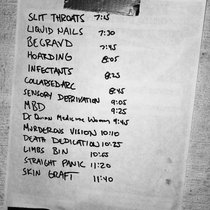 SLIT THROATS 7:15
LIQUID NAILS 7:30
BEGRAVD 7:45
HOARDING 8:05
INFECTANTS 8:25
COLLAPSED ARC 8:45
SENSORY DEPRIVATION 9:05
MBD 9:25
Dr Quinn Medicine Woman 9:45
MURDEROUS VISION 10:10
DEATH DEDICATION 10:25
LIMBS BIN 10:55
STRAIGHT PANIC 11:20
SKIN GRAFT 11:40